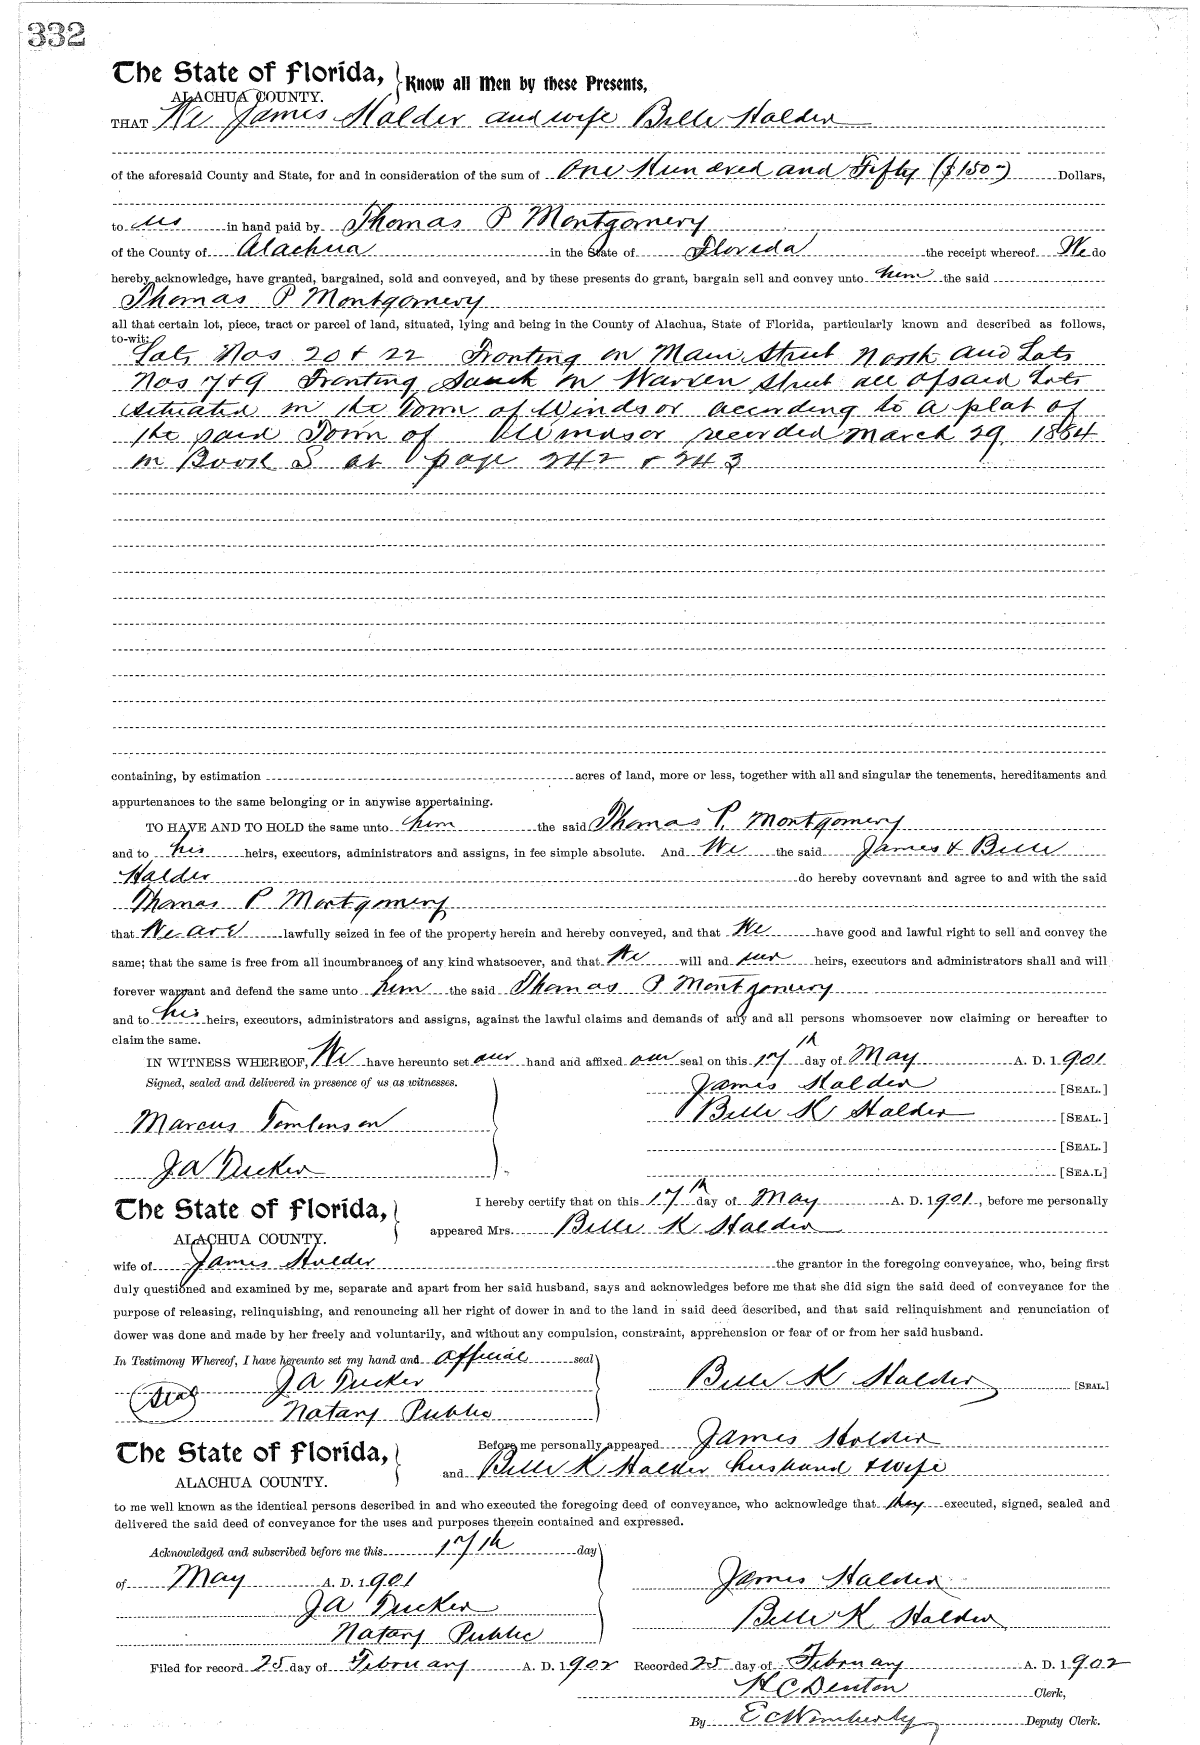 332
The State of Florida, Know all Men by these Presents,
ALACHUA COUNTY.
THAT We James Halder and wife Belle Halder
of the aforesaid County and State, for and in consideration of the sum of One Hundred and Fifty ($150-) Dollars,
to us in hand paid by Thomas P Montgomery
of the County of Alachua in the State of Florida the receipt whereof We do
hereby acknowledge, have granted, bargained, sold and conveyed, and by these presents do grant, bargain sell and convey unto him the said
Thomas P Montgomery
all that certain lot, piece, tract or parcel of land, situated, lying and being in the County of Alachua, State of Florida, particularly known and described as follows,
to-wit:
Lots Nos 20 & 22 Fronting on Main Street North and Lots
Nos 7 & 9 Fronting South on Warren Street all of said Lots
situated in the Town of Windsor according to a plat of
the said Town of Windsor recorded March 29 1884
in Book S at page 242 & 243
containing, by estimation acres of land, more or less, together with all and singular the tenements, hereditaments and
appurtenances to the same belonging or in anywise appertaining.
TO HAVE AND TO HOLD the same unto him the said Thomas P. Montgomery
and to his heirs, executors, administrators and assigns, in fee simple absolute. And We the said James & Belle
Halder do hereby covevnant and agree to and with the said
Thomas P Montgomery
that We are lawfully seized in fee of the property herein and hereby conveyed, and that We have good and lawful right to sell and convey the
same; that the same is free from all incumbrances of any kind whatsoever, and that We will and our heirs, executors and administrators shall and will
forever warrant and defend the same unto him the said Thomas P Montgomery
and to his heirs, executors, administrators and assigns, against the lawful claims and demands of any and all persons whomsoever now claiming or hereafter to
claim the same.
IN WITNESS WHEREOF, We have hereunto set our hand and affixed our seal on this 17th day of May A. D. 1901
Signed, sealed and delivered in presence of us as witnesses. James Halder [SEAL.]
Marcus Tomlinson Belle K Halder [SEAL.]
[SEAL.]
J A Tucker [SEA.L]
The State of Florida, I hereby certify that on this 17th day of May A. D. 1901, before me personally
ALACHUA COUNTY. appeared Mrs. Belle K Halder
wife of James Halder the grantor in the foregoing conveyance, who, being first
duly questioned and examined by me, separate and apart from her said husband, says and acknowledges before me that she did sign the said deed of conveyance for the
purpose of releasing, relinquishing, and renouncing all her right of dower in and to the land in said deed described, and that said relinquishment and renunciation of
dower was done and made by her freely and voluntarily, and without any compulsion, constraint, apprehension or fear of or from her said husband.
In Testimony Whereof, I have hereunto set my hand and official seal
J A Tucker Belle K Halder [SEAL.]
Seal Notary Public
The State of Florida, Before me personally appeared James Halder
ALACHUA COUNTY. and Belle K Halder husband & wife
to me well known as the identical persons described in and who executed the foregoing deed of conveyance, who acknowledge that they executed, signed, sealed and
delivered the said deed of conveyance for the uses and purposes therein contained and expressed.
Acknowledged and subscribed before me this 17th day
of May A. D. 1901 James Halder
J A Tucker Belle K Halder
Notary Public
Filed for record 25 day of February A. D. 1902 Recorded 25 day of February A. D. 1902
H C Denton Clerk,
By E C Wimberly Deputy Clerk.